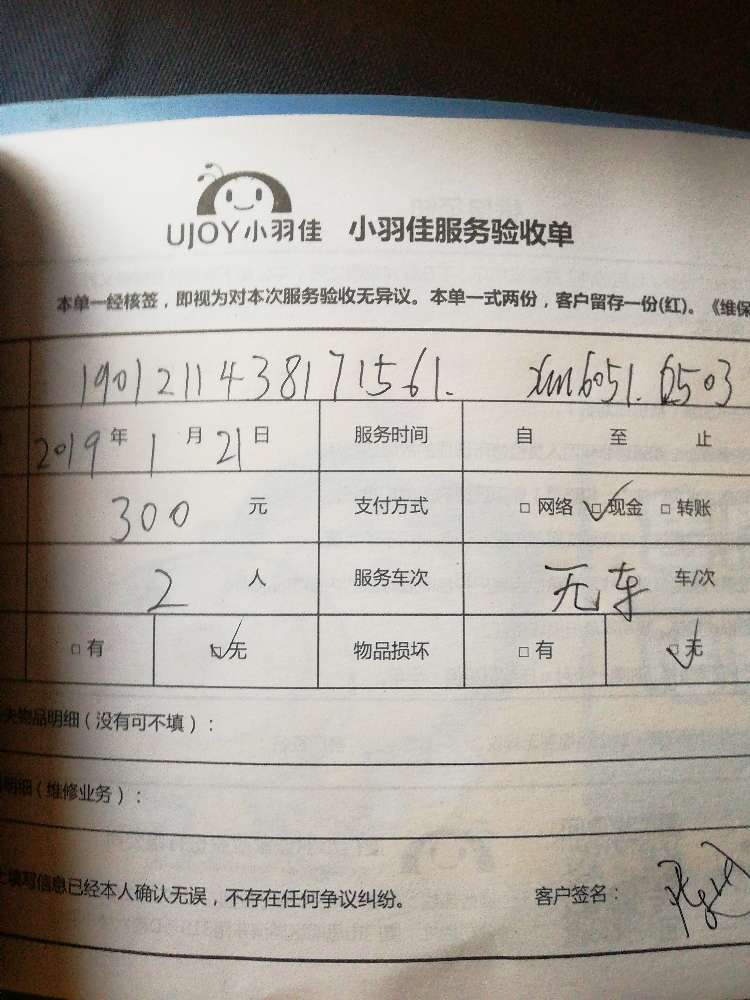 UJOY小羽佳 小羽佳服务验收单
本单一经核签，即视为对本次服务验收无异议。本单一式两份，客户留存一份(红)。《维保
1901211438171561. xm6051.6503
2019年1月21日 服务时间 自 至 止
300元 支付方式 □网络 ☑现金 □转账
2人 服务车次 无车 车/次
□有 ☑无 物品损坏 □有 ☑无
失物品明细（没有可不填）：
明细（维修业务）：
上填写信息已经本人确认无误，不存在任何争议纠纷。 客户签名：